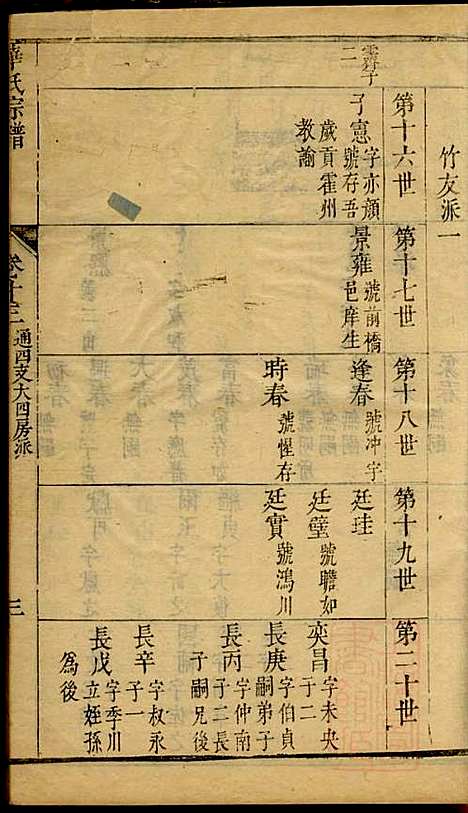 竹友派一
第十六世
第十七世
第十八世
第十九世
第二十世
霽子
二
子憲 字亦顏
號存吾
歲貢霍州
教諭
景雍 號前橋
邑庠生
逢春 號冲宇
時春 號惺存
廷珪
廷璧 號瞻如
廷實 號鴻川
奕昌 字未央
子二
長庚 字伯貞
嗣弟子
長丙 字仲南
子二長
子嗣兄後
長辛 字叔永
子一
長戊 字季川
立姪孫
爲後
氏宗譜
卷十三
通四支大四房派
三